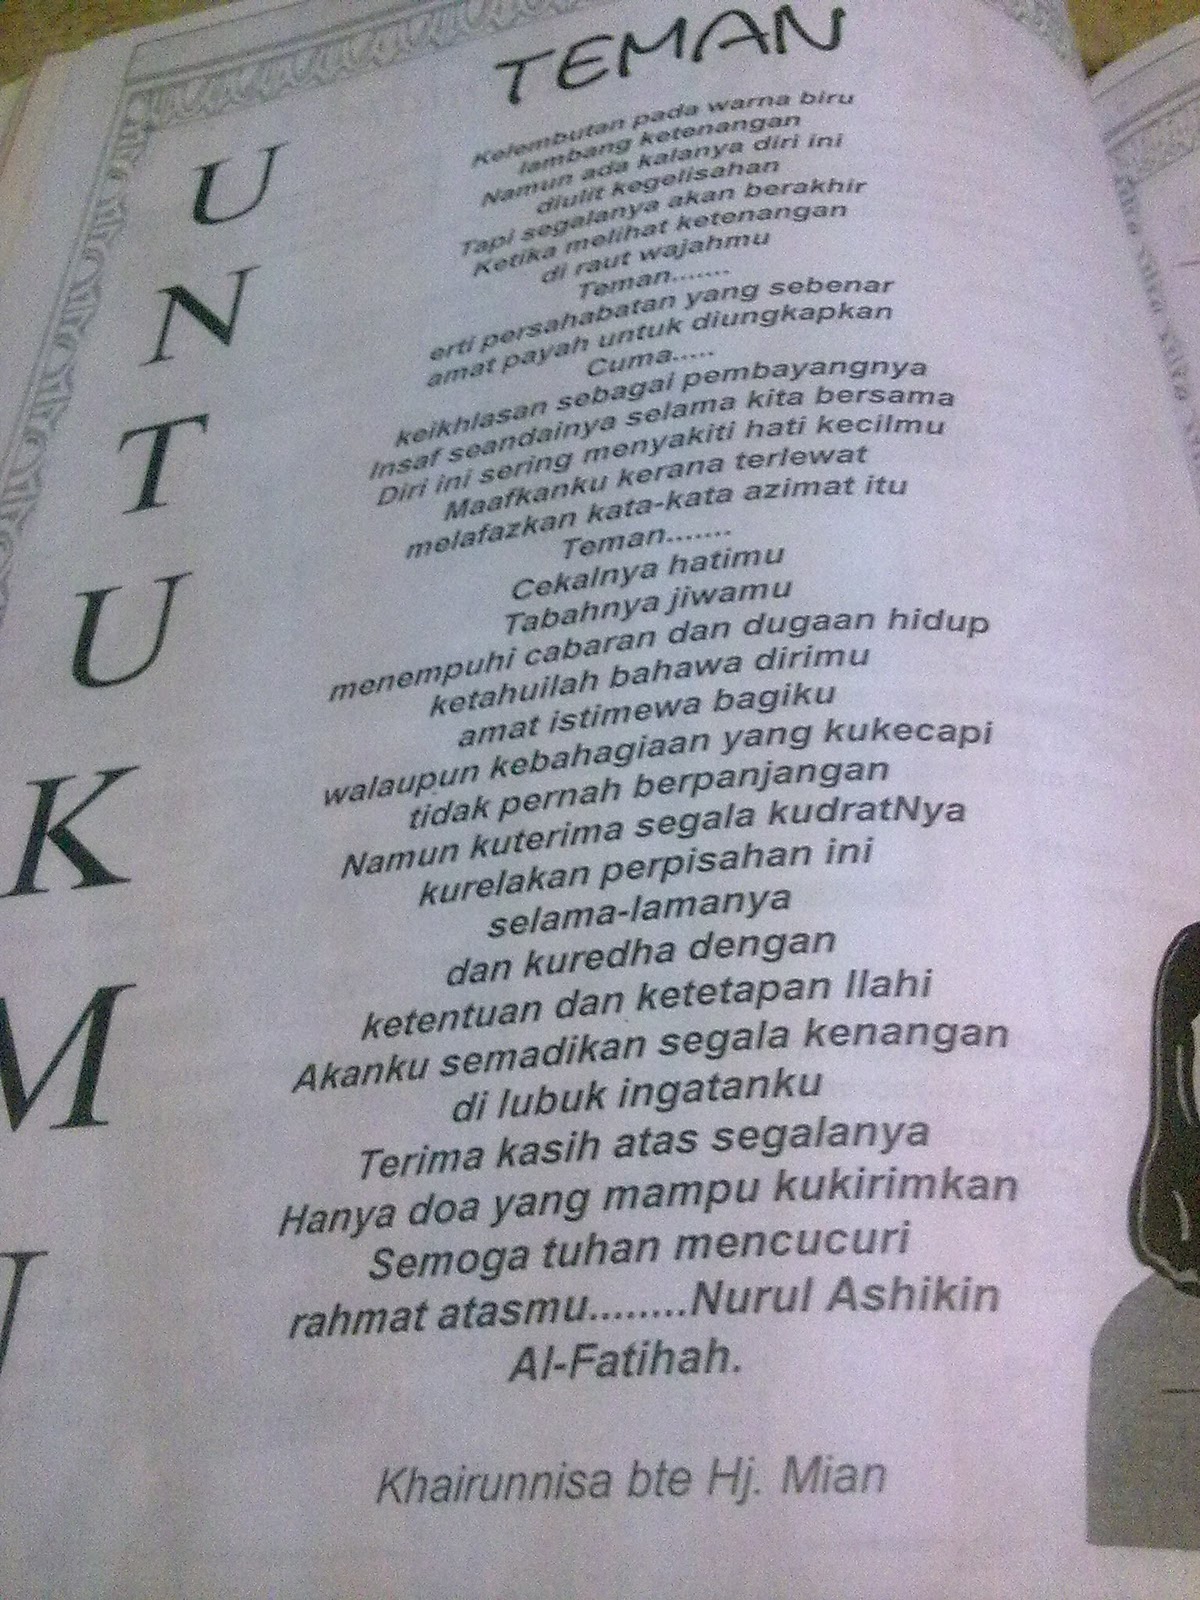 UNTUKMU
TEMAN
Kelembutan pada warna biru
lambang ketenangan
Namun ada kalanya diri ini
diulit kegelisahan
Tapi segalanya akan berakhir
Ketika melihat ketenangan
di raut wajahmu
Teman.......
erti persahabatan yang sebenar
amat payah untuk diungkapkan
Cuma.....
keikhlasan sebagai pembayangnya
Insaf seandainya selama kita bersama
Diri ini sering menyakiti hati kecilmu
Maafkanku kerana terlewat
melafazkan kata-kata azimat itu
Teman.......
Cekalnya hatimu
Tabahnya jiwamu
menempuhi cabaran dan dugaan hidup
ketahuilah bahawa dirimu
amat istimewa bagiku
walaupun kebahagiaan yang kukecapi
tidak pernah berpanjangan
Namun kuterima segala kudratNya
kurelakan perpisahan ini
selama-lamanya
dan kuredha dengan
ketentuan dan ketetapan Ilahi
Akanku semadikan segala kenangan
di lubuk ingatanku
Terima kasih atas segalanya
Hanya doa yang mampu kukirimkan
Semoga tuhan mencucuri
rahmat atasmu........Nurul Ashikin
Al-Fatihah.
Khairunnisa bte Hj. Mian